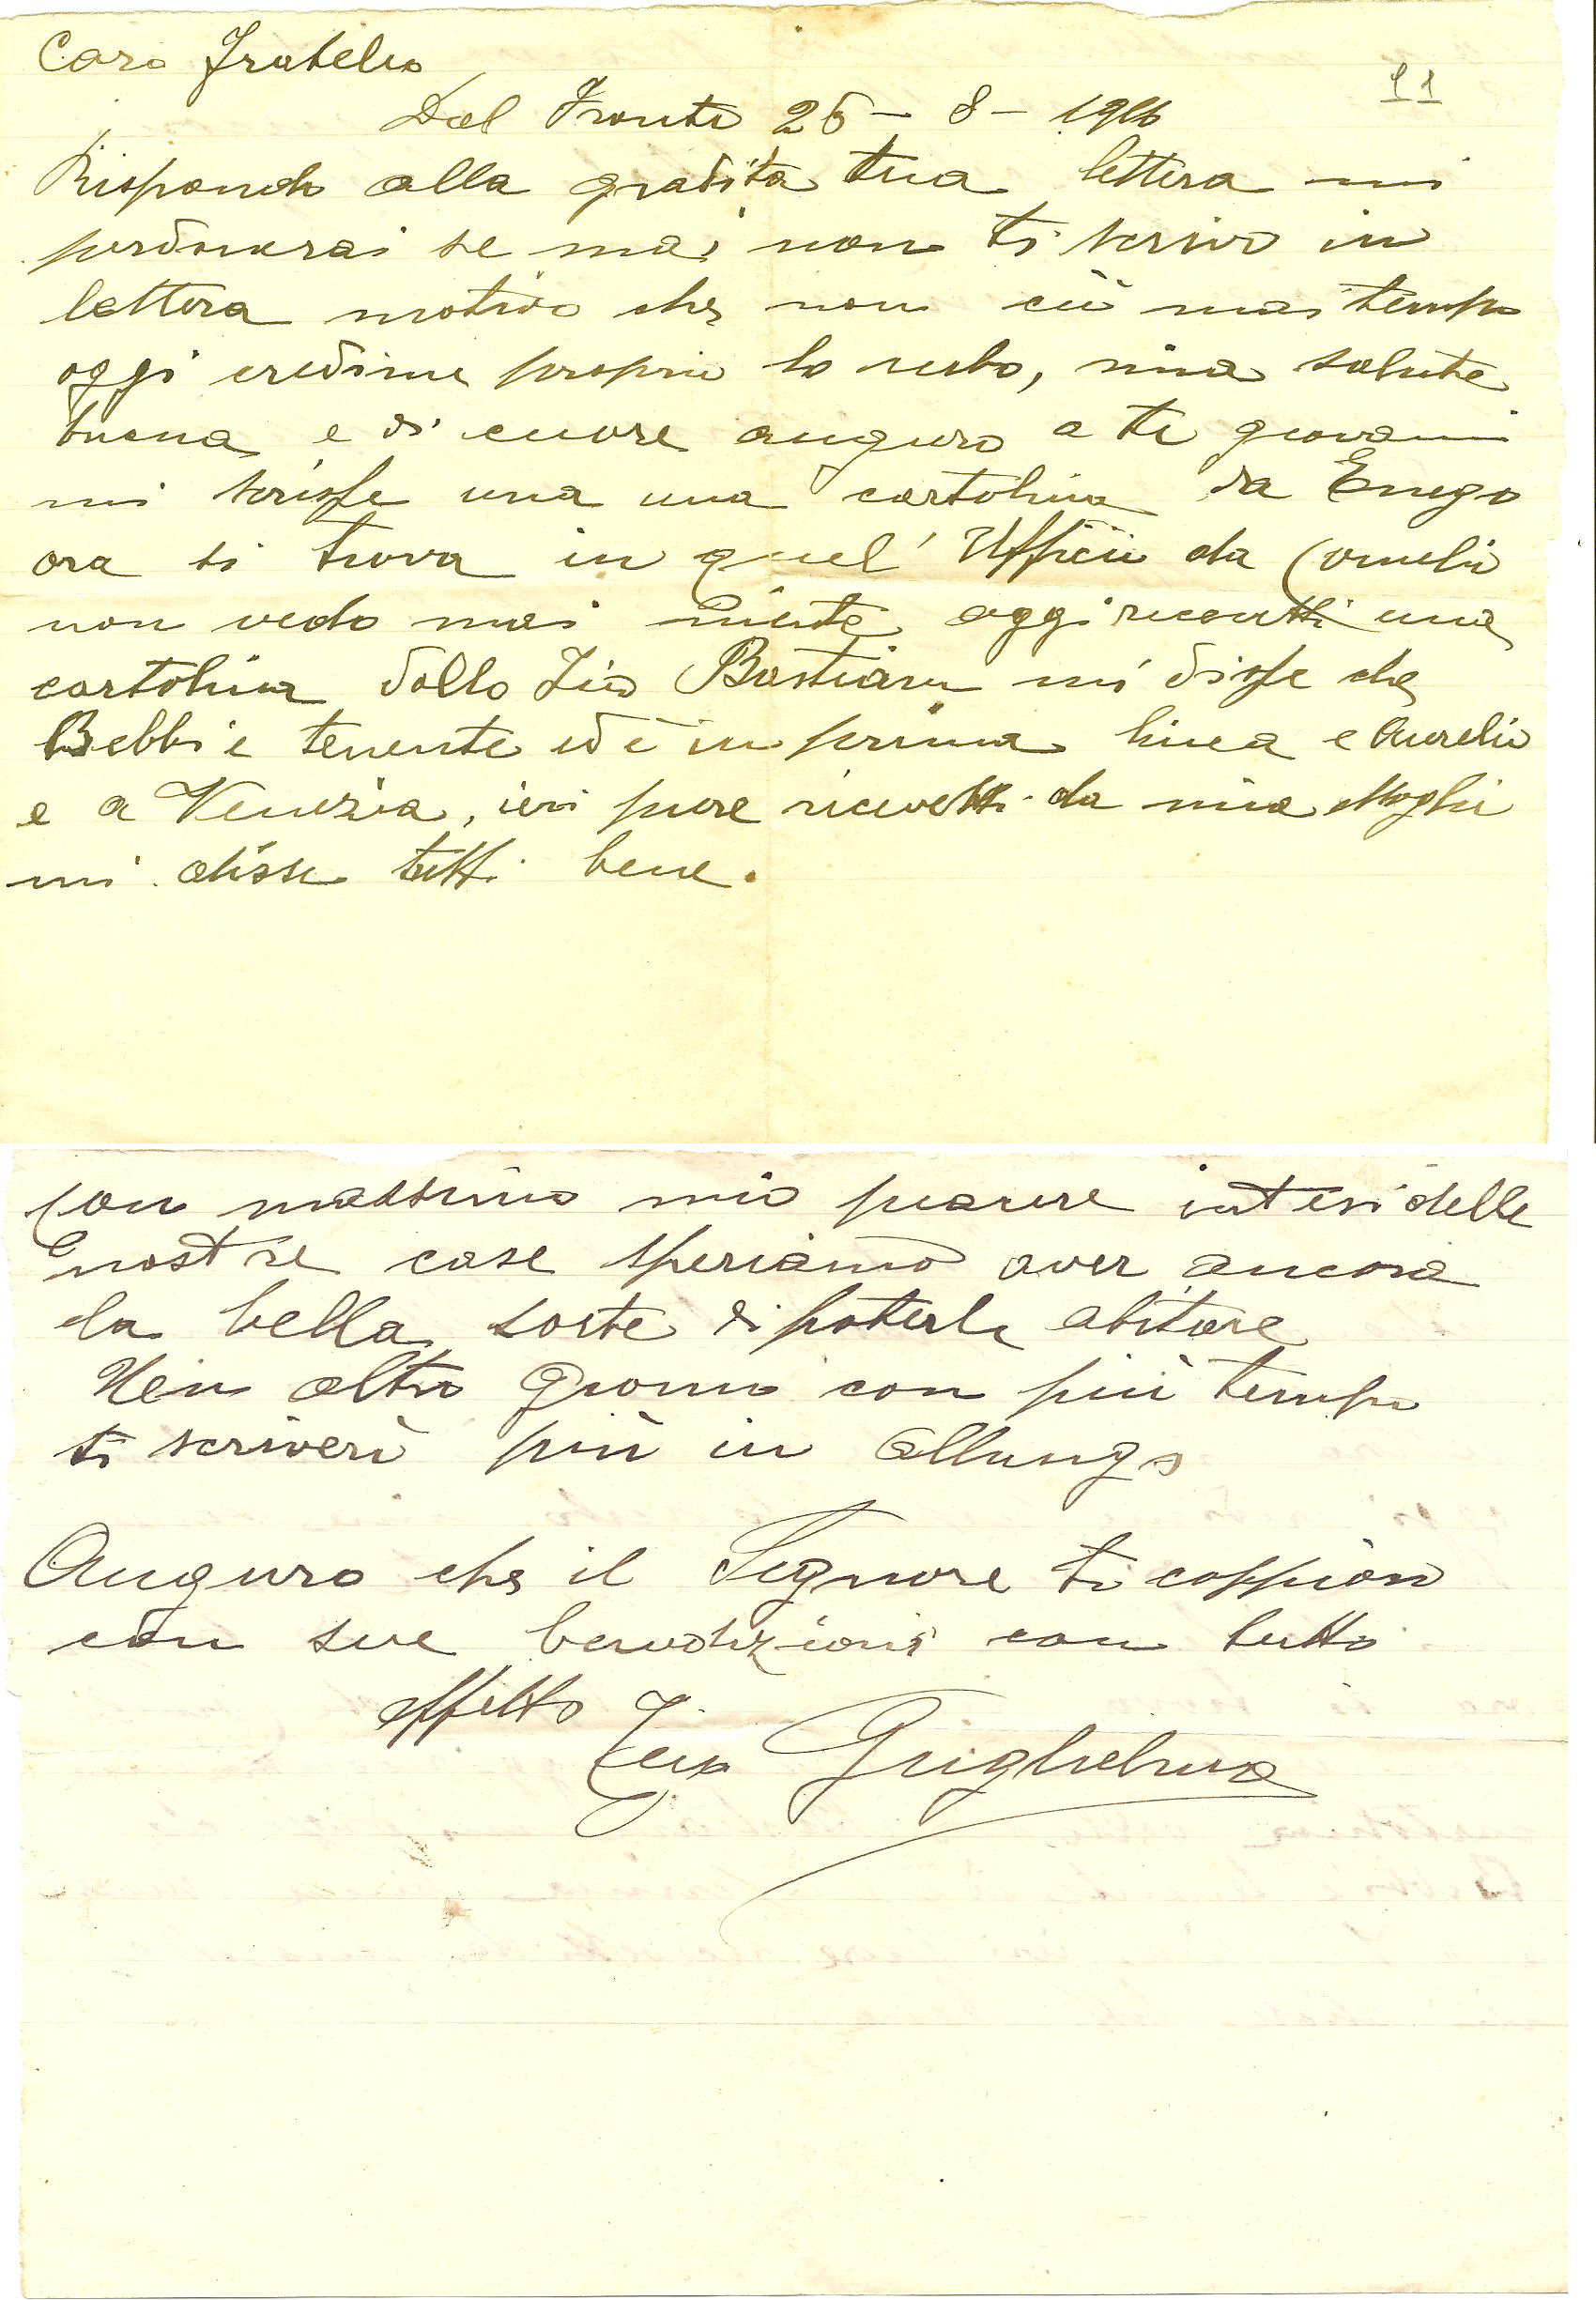 Caro Fratello
11
Dal Fronte 26 - 8 - 1916
Rispondo alla gradita tua lettera mi
perdonerai se mai non ti scrivo in
lettera motivo che non ciè mai tempo
oggi credime proprio lo rubo, mia salute
buona e di cuore auguro a te giovani
mi scrisse una una cartolina da Enego
ora si trova in quel' Ufficio da Cornelio
non vedo mai niente oggi ricevetti una
cartolina dallo Zio Bastian mi disse che
Bebbi e tenente ed è in prima linea e Aurelio
e a Venezia, ieri pure ricevetti da mia Moglie
mi disse tutti bene.
Con massimo mio piacere intesi delle
nostre case speriamo aver ancora
la bella sorte di poterle abitare
Nein altro Giorno con più tempo
ti scriverò più in allungo
Auguro che il Signore ti
con sue benedizioni con tutto
affetto
Guglielmo